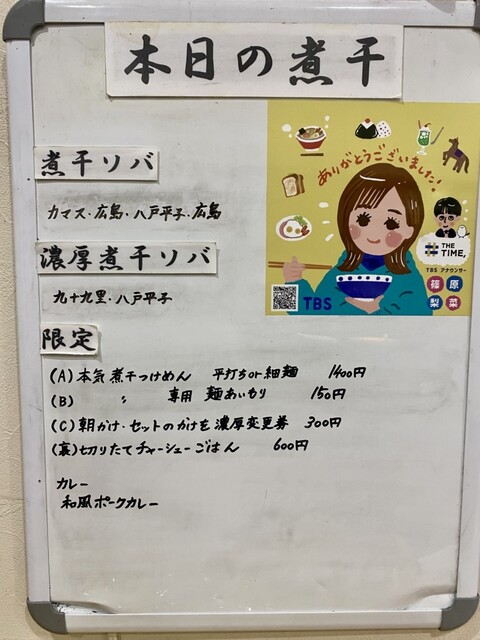 本日の煮干
煮干ソバ
カマス・広島・八戸平子・広島
濃厚煮干ソバ
九十九里・八戸平子
限定
(A) 本気煮干つけめん 平打ちor細麺 1400円
(B) 〃 専用 麺あいもり 150円
(C) 朝かけ・セットのかけを濃厚変更券 300円
(裏) 切りたてチャーシューごはん 600円
カレー
和風ポークカレー
ありがとうございました!
THE TIME,
TBS アナウンサー
篠原
梨菜
TBS